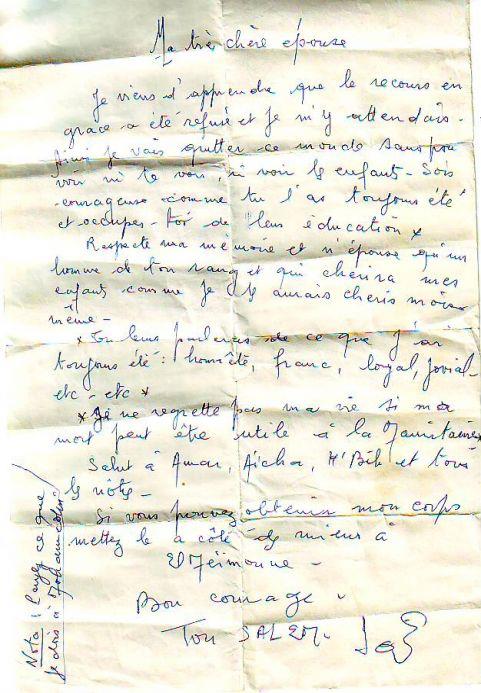 Ma très chère épouse
Je viens d'apprendre que le recours en
grâce a été refusé et je m'y attendais -
Ainsi je vais quitter ce monde sans pou
voir ni te voir, ni voir les enfants - Sois
courageuse comme tu l'as toujours été
et occupes-toi de leur éducation
Respecte ma mémoire et n'épouse qu'un
homme de ton rang et qui chérira mes
enfants comme je les aurais chéris moi
même -
Tu leur parleras de ce que j'ai
toujours été : honnête, franc, loyal, jovial -
etc - etc
Je ne regrette pas ma vie si ma
mort peut être utile à la Mauritanie
Salut à Amar, Aïcha, et tous
les nôtres -
Si vous pouvez obtenir mon corps
mettez le à côté des miens à
Bon courage.
Ton SALEM.
Nota : Payez ce que
je dois à